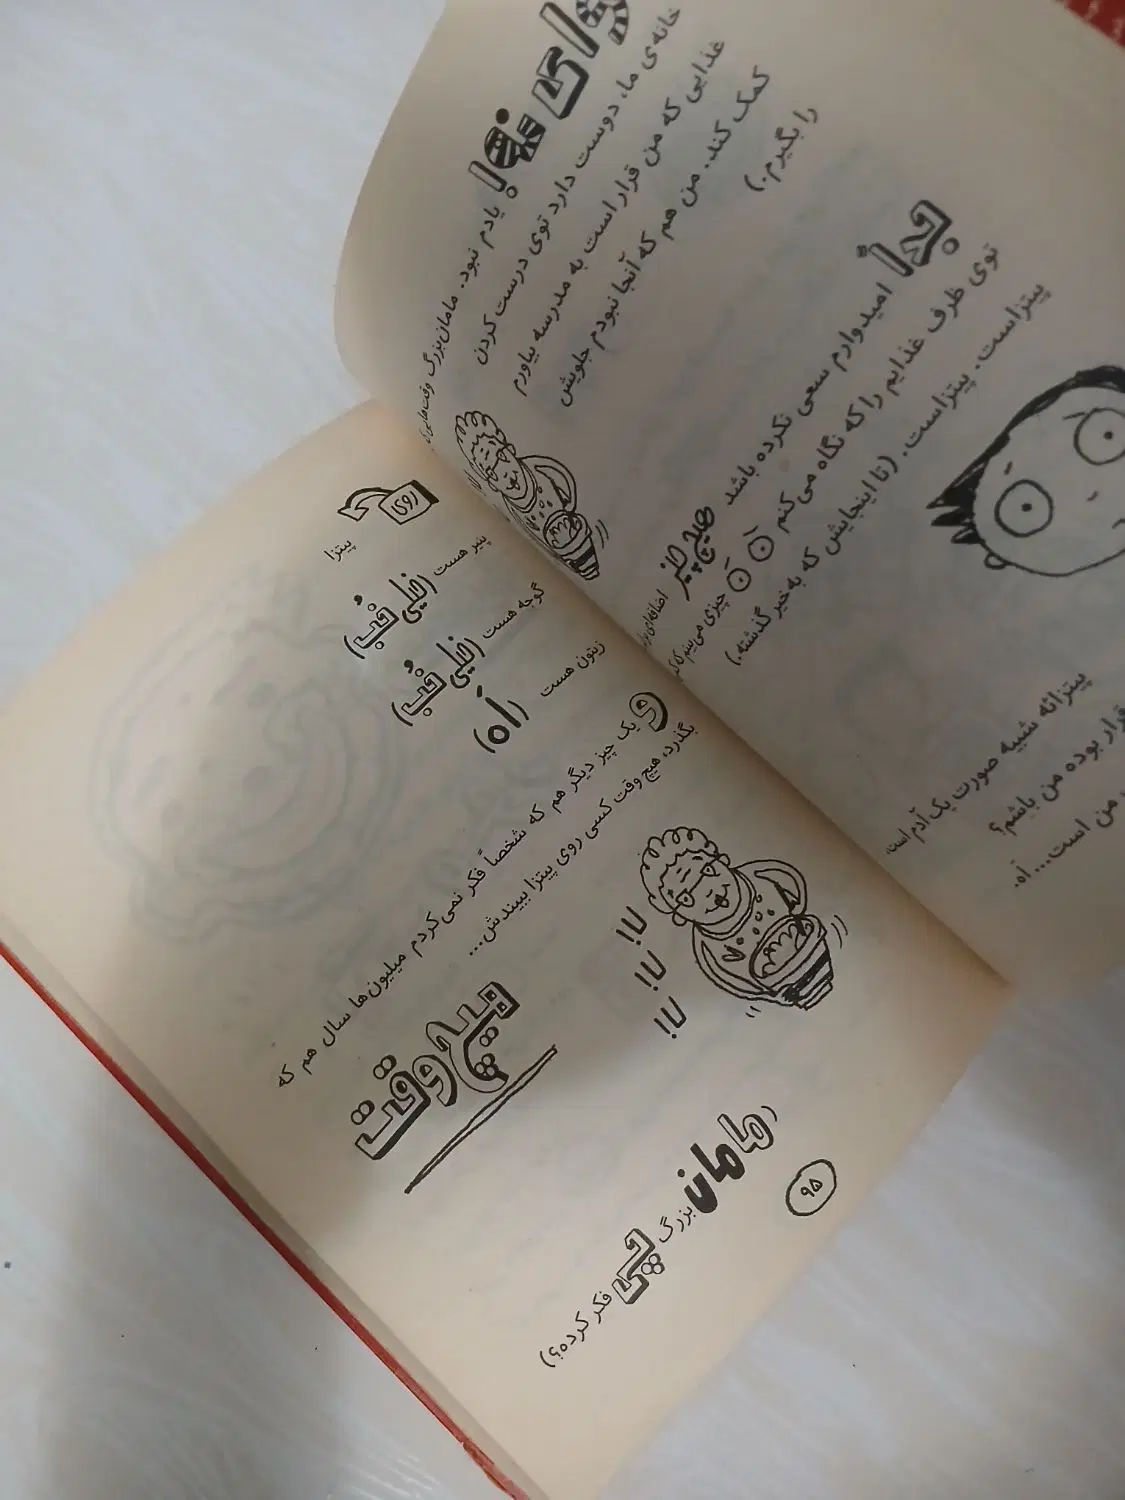 وای نه!
یادم نبود. مامان‌بزرگ وقت‌هایی که
خانه‌ی ما، دوست دارد توی درست کردن
غذایی که من قرار است به مدرسه بیاورم
کمک کند. من هم که آنجا نبودم جلویش
را بگیرم.)
جداً امیدوارم سعی نکرده باشد هیچ چیز اضافه‌ای
توی ظرف غذایم را که نگاه می‌کنم چیزی می‌بینم که
پیتزاست. پیتزاست. (تا اینجایش که به خیر گذشته.)
پیتزائه شبیه صورت یک آدم است.
قرار بوده من باشم؟
من است... اَه.
روی
پیتزا
پنیر هست (خیلی خُب)
گوجه هست (خیلی خُب)
زیتون هست (اَه)
و یک چیز دیگر هم که شخصاً فکر نمی‌کردم میلیون‌ها سال هم که
بگذرد، هیچ وقت کسی روی پیتزا ببیندش...
هیچ‌وقت
نه!!
نه!!
نه!!
(مامان بزرگ چی فکر کرده؟)
۹۵